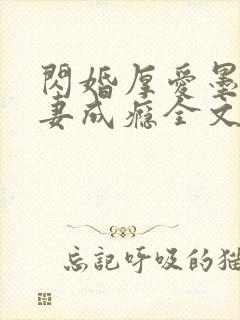 閃婚厚愛墨
妻成癮全文
忘記呼吸的猫